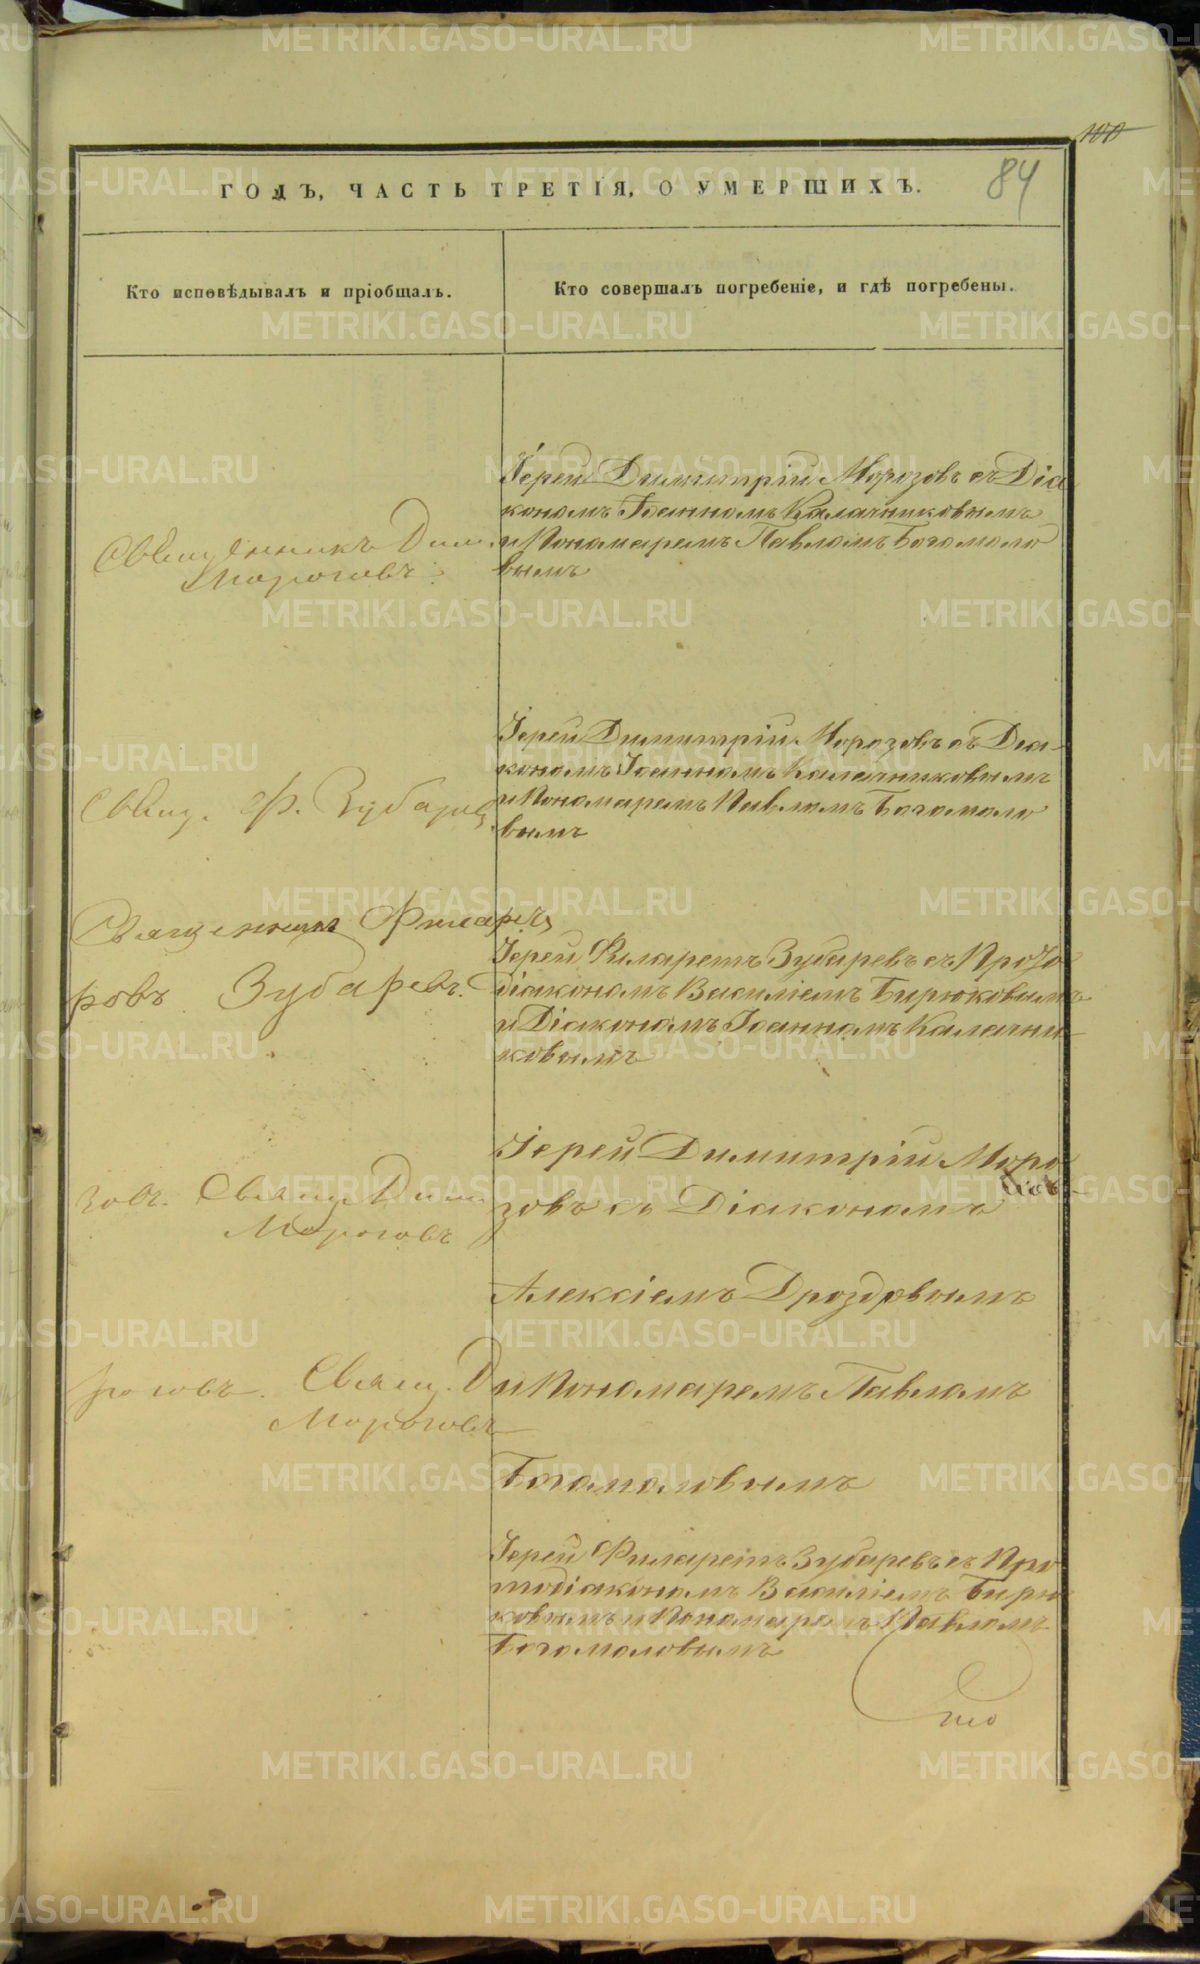 100
84
ГОДЪ, ЧАСТЬ ТРЕТІЯ, О УМЕРШИХЪ.
Кто исповѣдывалъ и пріобщалъ.
Кто совершалъ погребеніе, и гдѣ погребены.
Іерей Димитрій Морозовъ съ Діа
кономъ Іоанномъ Калачниковымъ
и Пономаремъ Павломъ Богомоло
вымъ
Священникъ Дим.
Морозовъ.
Іерей Димитрій Морозовъ съ Діа-
кономъ Іоанномъ Калачниковымъ
и Пономаремъ Павломъ Богомоло
вымъ
Свящ. Ф. Зубарев
Священникъ Филаретъ
ровъ Зубаревъ.
Іерей Филаретъ Зубаревъ съ Прото
діакономъ Василіемъ Бирюковымъ
и Діакономъ Іоанномъ Калачни-
ковымъ
зовъ. Свящ. Дим.
Морозовъ
Іерей Димитрій Моро
зовъ съ Діакономъ
Алексіемъ Дроздовымъ
и Пономаремъ Павломъ
Богомоловымъ
розовъ. Свящ. Д
Морозовъ
Іерей Филаретъ Зубаревъ съ Про
тодіакономъ Василіемъ Бирю
ковымъ и Пономаремъ Павломъ
Богомоловымъ
METRIKI.GASO-URAL.RU